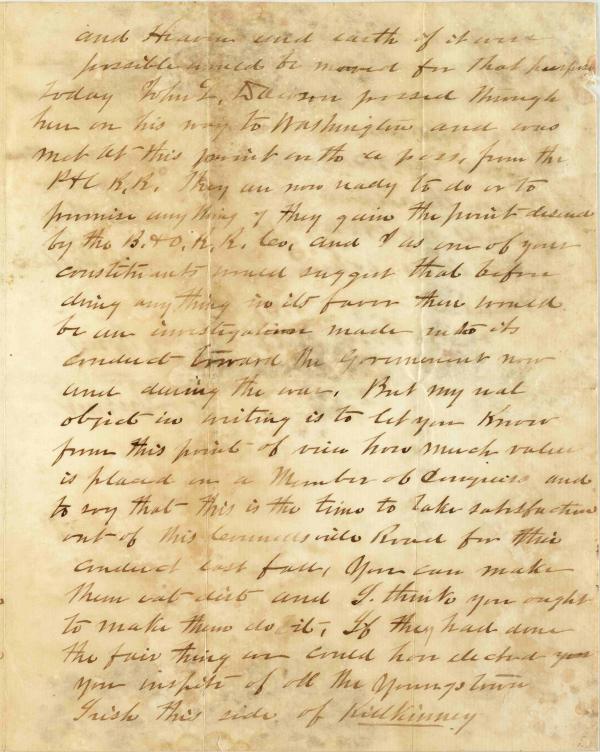 and Heaven and earth if it were
possible would be moved for that purpose
today John L. Dawson passed through
here on his way to Washington and was
met at this point with a pass, from the
P&C R.R. They are now ready to do or to
promise anything if they gain the point desired
by the B.&O. R.R. Co, and I as one of your
constituents would suggest that before
doing anything in its favor there would
be an investigation made into its
conduct toward the Government now
and during the war. But my real
object in writing is to let you Know
from this point of view how much value
is placed on a Member of Congress and
to say that this is the time to take satisfaction
out of this Connellsville Road for their
conduct last fall, You can make
them eat dirt and I think you ought
to make them do it, If they had done
the fair thing we could have elected you
you inspite of all the Youngstown
Irish this side of Killkinney